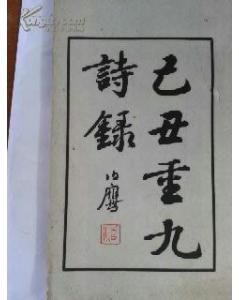 己丑重九
詩録